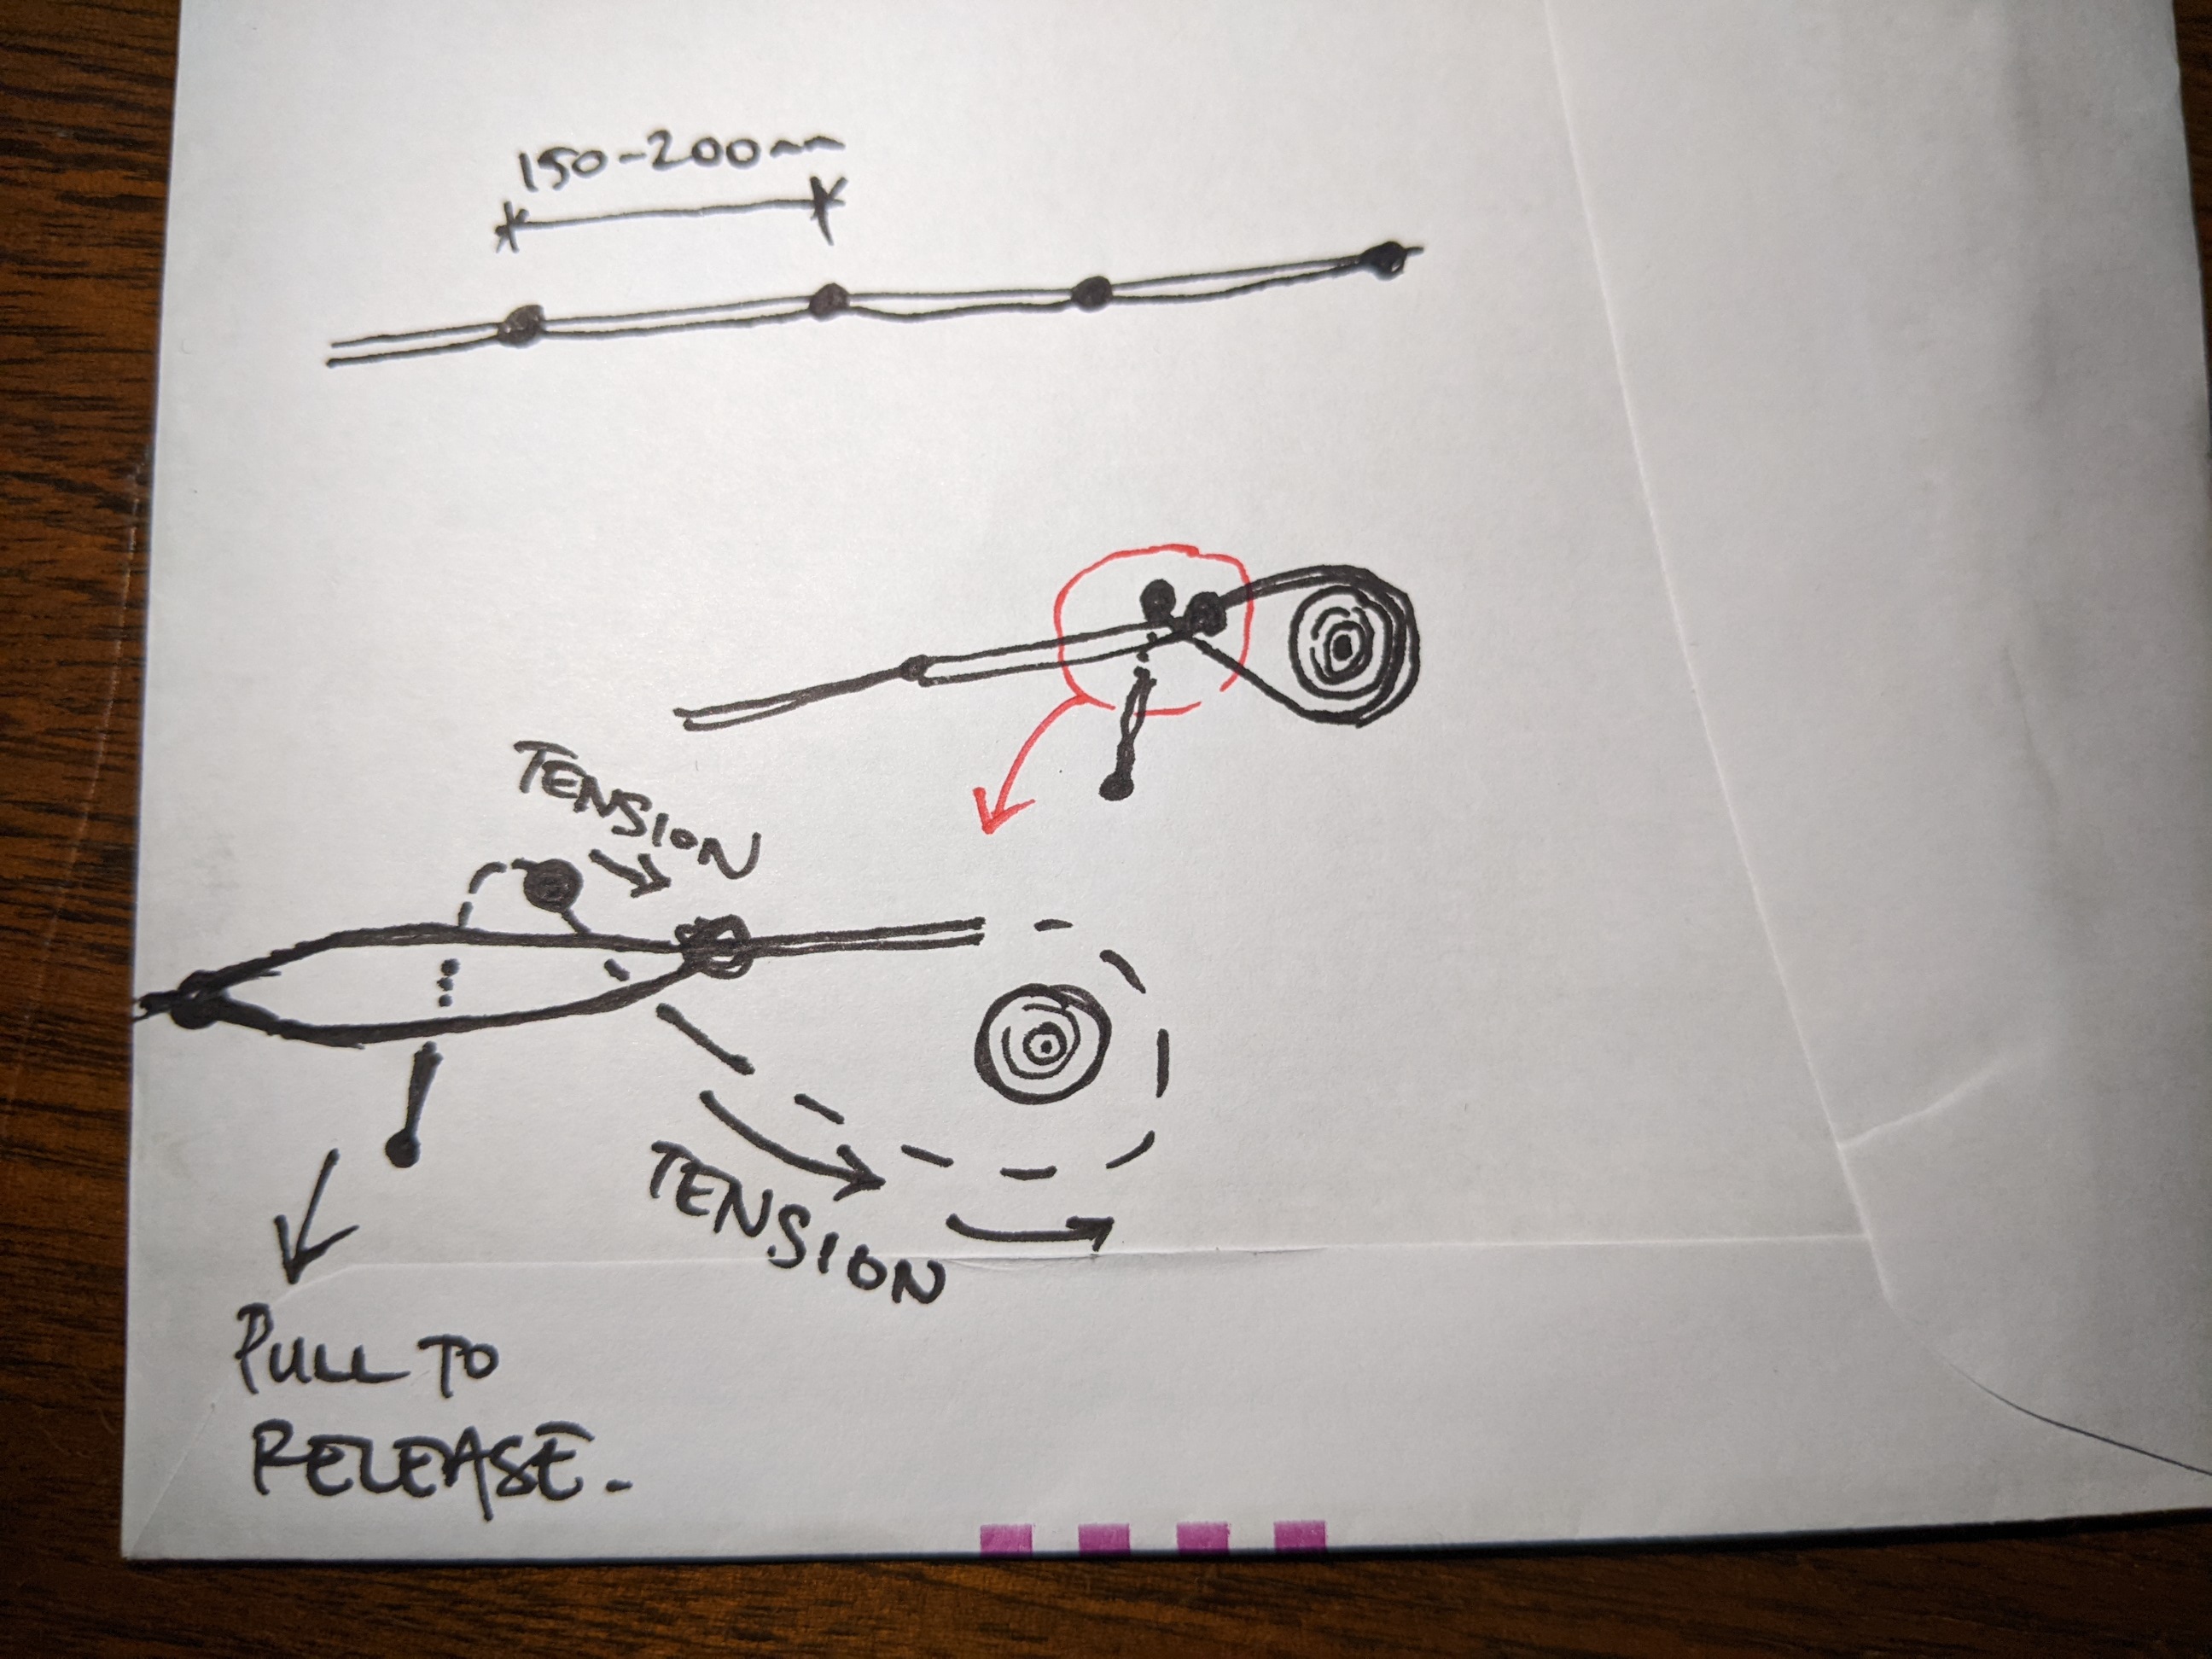 150-200mm
TENSION
TENSION
PULL TO
RELEASE.